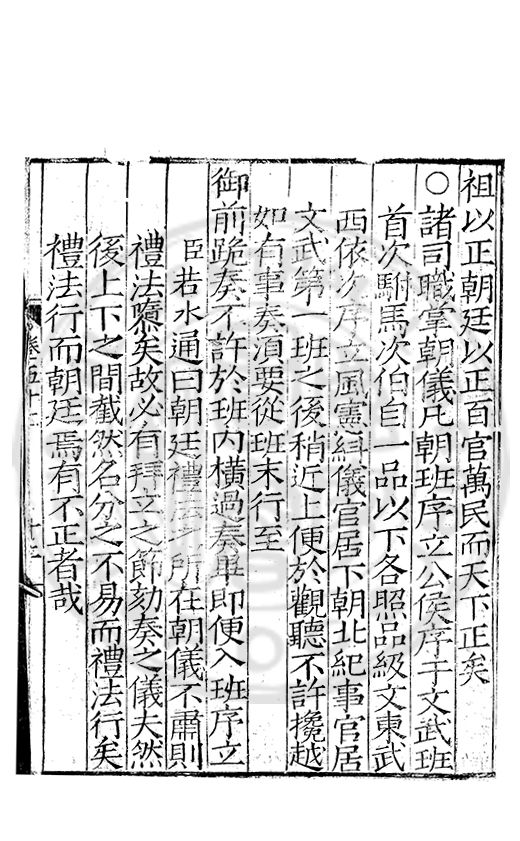 祖以正朝廷以正百官萬民而天下正矣
○諸司職掌朝儀凡朝班序立公侯序于文武班
首次駙馬次伯自一品以下各照品級文東武
西依次序立風憲糾儀官居下朝北紀事官居
文武第一班之後稍近上便於觀聽不許攙越
如有事奏湏要從班末行至
御前跪奏不許於班内橫過奏畢即便入班序立
臣若水通曰朝廷禮法之所在朝儀不肅則
禮法隳矣故必有拜立之節劾奏之儀夫然
後上下之間截然名分之不易而禮法行矣
禮法行而朝廷焉有不正者哉
卷五十